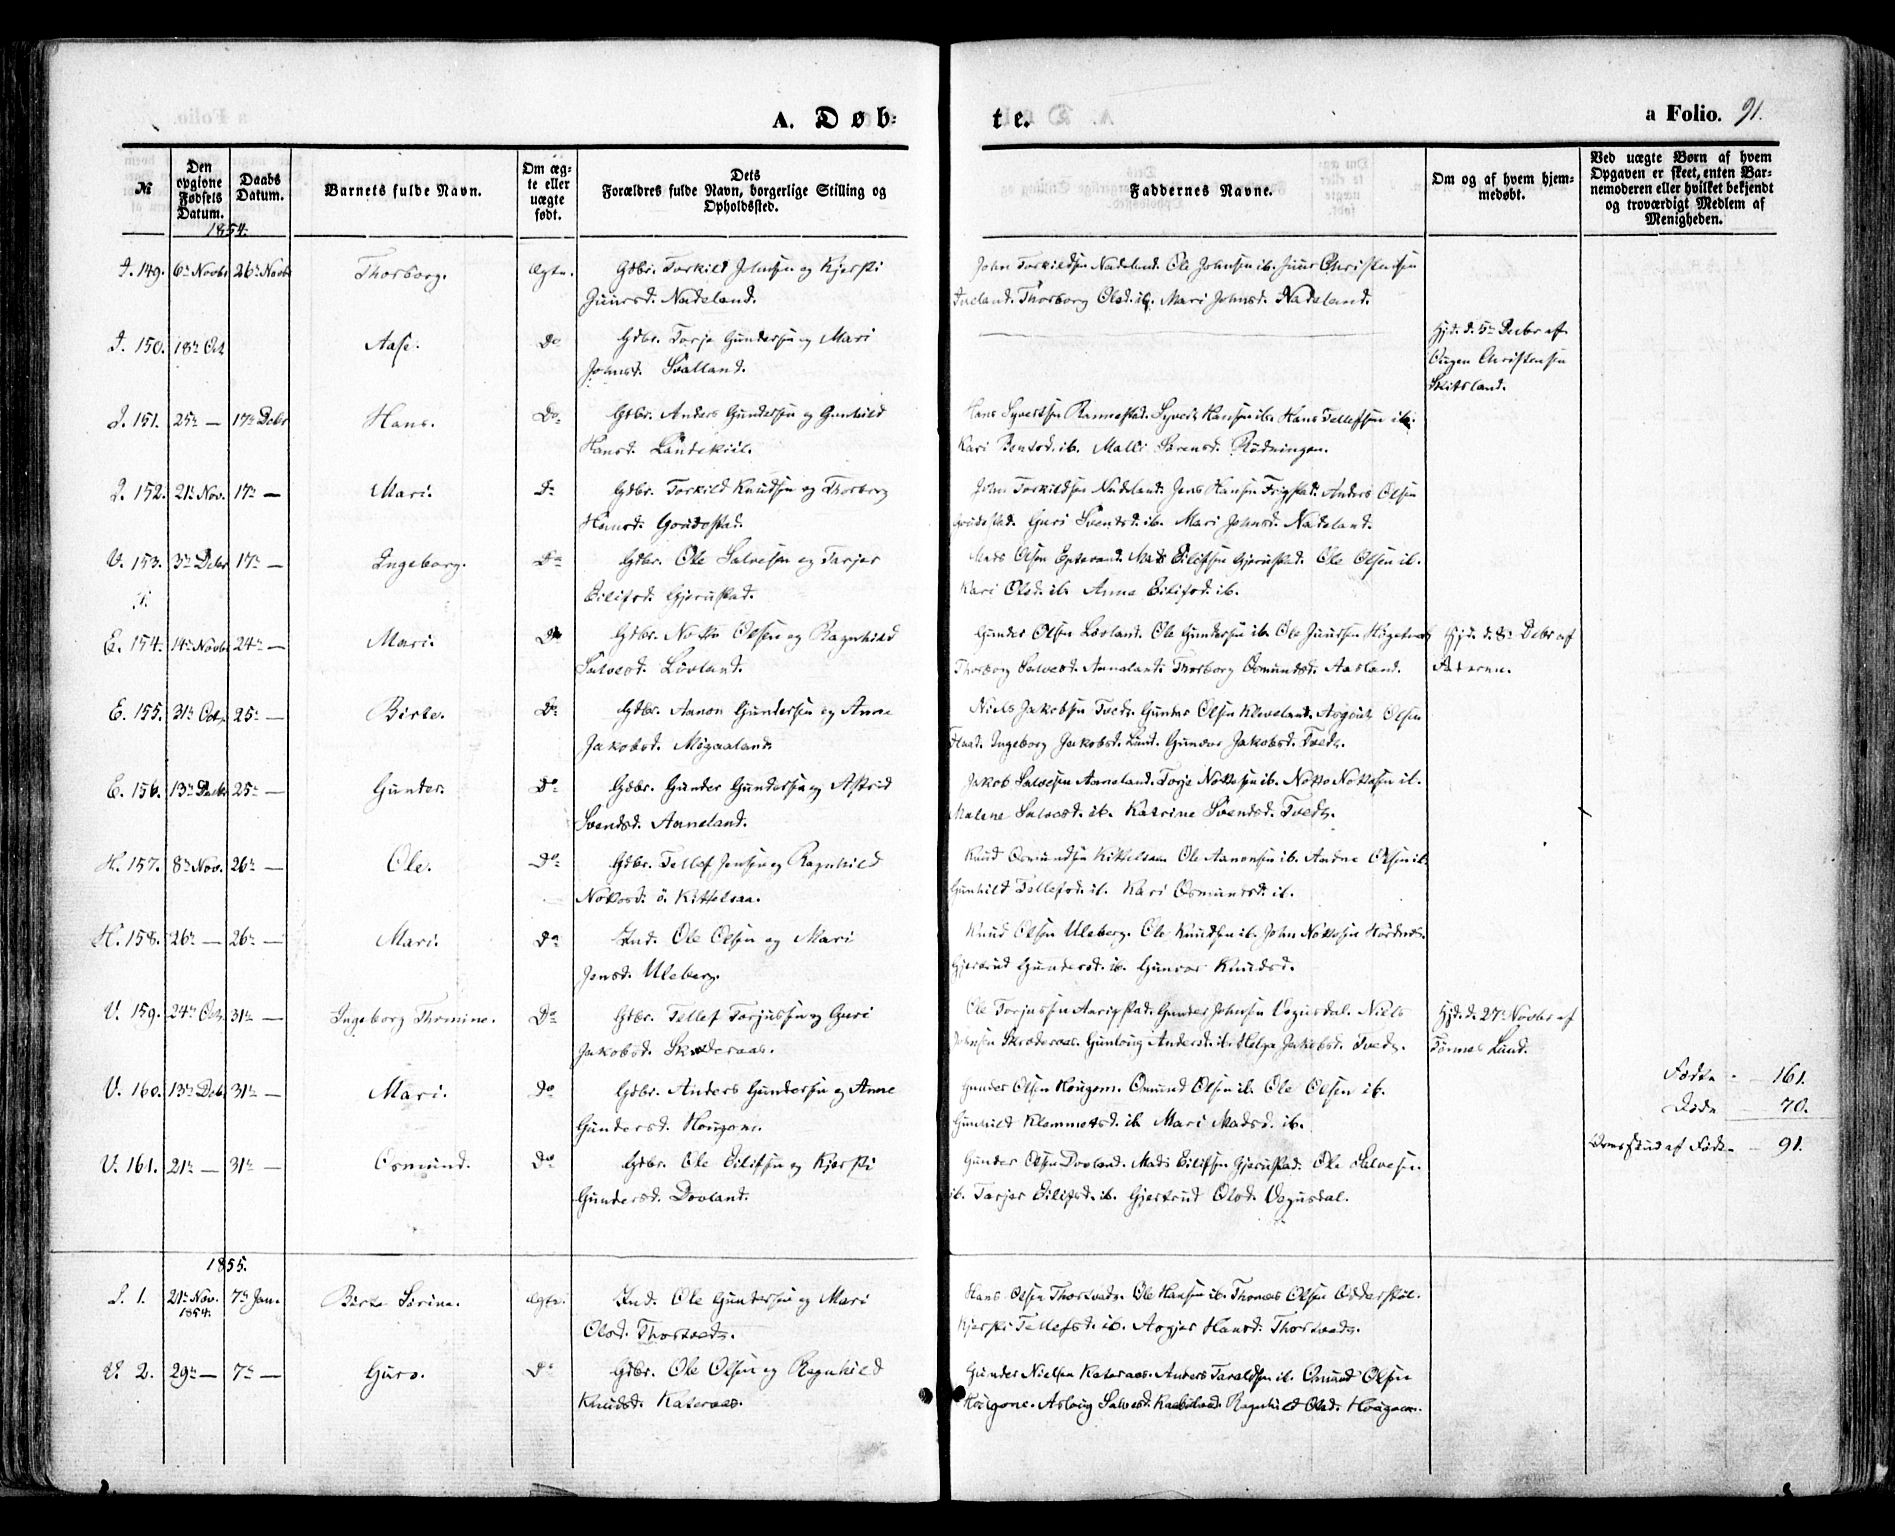 A. Døb-
te.
a Folio. 91.
№
Den opgivne Fødsels Datum.
Daabs Datum.
Barnets fulde Navn.
Om ægte eller uægte født.
Dets Forældres fulde Navn, borgerlige Stilling og Opholdssted.
Faddernes Navne.
Om og af hvem hjemmedøbt.
Ved uægte Børn af hvem Opgaven er skeet, enten Barnemoderen eller hvilket bekjendt og troværdigt Medlem af Menigheden.
1854.
149. 6te Novbr 26de Novbr Thorborg. Ægte. Gdbr. Torkild Johnsen og Kjersti
Juursd. Nadeland.
John Torkildsen Nadeland. Ole Johnsen ib. Juur Christensen
Thorborg Olsd. ib. Mari Johnsd. Nadeland.
150. 18de Oct Aase. Do Gdbr. Torje Gundersen og Mari
Johnsd. Svalland.
Hjd. d. 5te Decbr af
Ougen Christensen
Skitsland.
151. 25de — 17de Debr Hans. Do. Gdbr. Anders Gundersen og Gunhild
Hansd. Landekiil.
Hans Syvertsen Rannestad. Syvert Hansen ib. Hans Tellefsen ib.
Kari Bentsd. ib. Malli Sørensd. Rødningen.
152. 21de Nov. 17de — Mari. Do Gdbr. Torkild Knudsen og Thorborg
Hansd. Goudestad.
John Torkildsen Nadeland. Jens Hansen Frigstad. Anders Olsen
Goudestad. Guri Svendsd. ib. Mari Johnsd. Nadeland.
V. 153. 3de Debr 17de — Ingeborg. Do Gdbr. Ole Salvesen og Tarjer
Eilifsd. Gjerustad.
Mads Olsen Eptevand. Mads Eilifsen Gjerustad. Ole Olsen ib.
Kari Olsd. ib. Anne Eilifsd. ib.
E. 154. 14de Novbr 24de — Mari. Do Gdbr. Notto Olsen og Ragnhild
Salvesd. Løvland.
Gunder Olsen Løvland. Ole Gundersen ib. Ole Juursen
Thorborg Salvesd. Anneland. Thorborg Osmundsd. Aasland.
Hjd. d. 8de Debr af
Faderen.
E. 155. 31te Oct. 25de — Birte. Do Gdbr. Aanon Gundersen og Anne
Jakobsd. Møgaaland.
Niels Jakobsen Tvedt. Gunder Olsen Kleveland. Asgout Olsen
Flaad. Ingeborg Jakobsd. Lund. Gunvor Jakobsd. Tvedt.
E. 156. 13de Debr 25de — Gunder. Do Gdbr. Gunder Gundersen og Astrid
Svendsd. Anneland.
Jakob Salvesen Aaneland. Torje Nottosen ib. Notto Nottosen ib.
Malene Salvesd. ib. Katrine Svendsd. Tvedt.
H. 157. 8de Nov. 26de — Ole. Do Gdbr. Tellef Jensen og Ragnhild
Nottosd. ø. Kittelsaa.
Knud Osmundsen Kittelsaa. Ole Aanonsen ib. Andne Olsen ib.
Gunhild Tellefsd. ib. Kari Osmundsd. ib.
H. 158. 26de — 26de — Mari. Do Ind. Ole Olsen og Mari
Jensd. Uleberg.
Knud Olsen Uleberg. Ole Knudsen ib. John Nottosen
Gjertrud Gundersd. ib. Gunvor Knudsd.
V. 159. 24de Oct. 31te — Ingeborg Thomine. Do Gdbr. Tellef Tarjussen og Guri
Jakobsd. Skrøderaas.
Ole Torjussen Aarigstad. Gunder Johnsen Vegusdal. Niels
Johnsen Skrøderaas. Gunloug Andersd. ib. Helga Jakobsd. Tvedt.
Hjd. d. 27de Novbr af
Tønnes Lund.
V. 160. 13de Deb. 31te — Mari. Do Gdbr. Anders Gundersen og Anne
Gundersd. Hougom.
Gunder Olsen Hougom. Osmund Olsen ib. Ole Olsen ib.
Gunhild Klemmetsd. ib. Mari Madsd. ib.
Fødte — 161.
Døde — 70.
V. 161. 21de — 31te — Osmund. Do Gdbr. Ole Eilifsen og Kjersti
Gundersd. Dovland.
Gunder Olsen Dovland. Mads Eilifsen Gjerustad. Ole Salvesen
ib. Tarjer Eilifsd. ib. Gjertrud Olsd. Vegusdal.
Overskud af Fødte — 91.
1855.
1. 21de Nov. 1854. 7de Jan. Birte Sirine. Ægte. Ind. Ole Gundersen og Mari
Olsd. Thortvedt.
Hans Olsen Thortvedt. Ole Hansen ib. Thomas Olsen Odderstøl.
Kjersti Tellefsd. ib. Asgjer Hansd. Thortvedt.
V. 2. 29de — 7de — Guro. Do Gdbr. Ole Olsen og Ragnhild
Knudsd. Kateraas.
Gunder Nielsen Kateraas. Anders Taraldsen ib. Osmund Olsen
Hougom. Aslaug Salvesd. Ragnhild Olsd. Hougom.